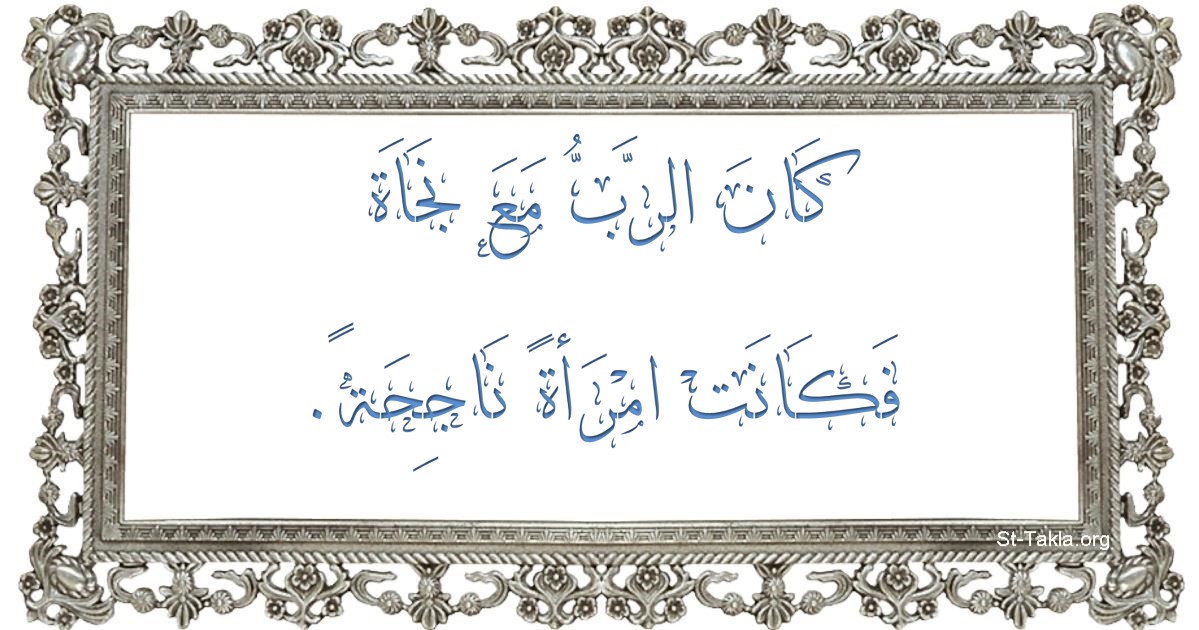 كَانَ الرَّبُّ مَعَ نَجَاَة
فَكَانَتْ امْرَأَةً نَاجِحَةً.
St-Takla.org